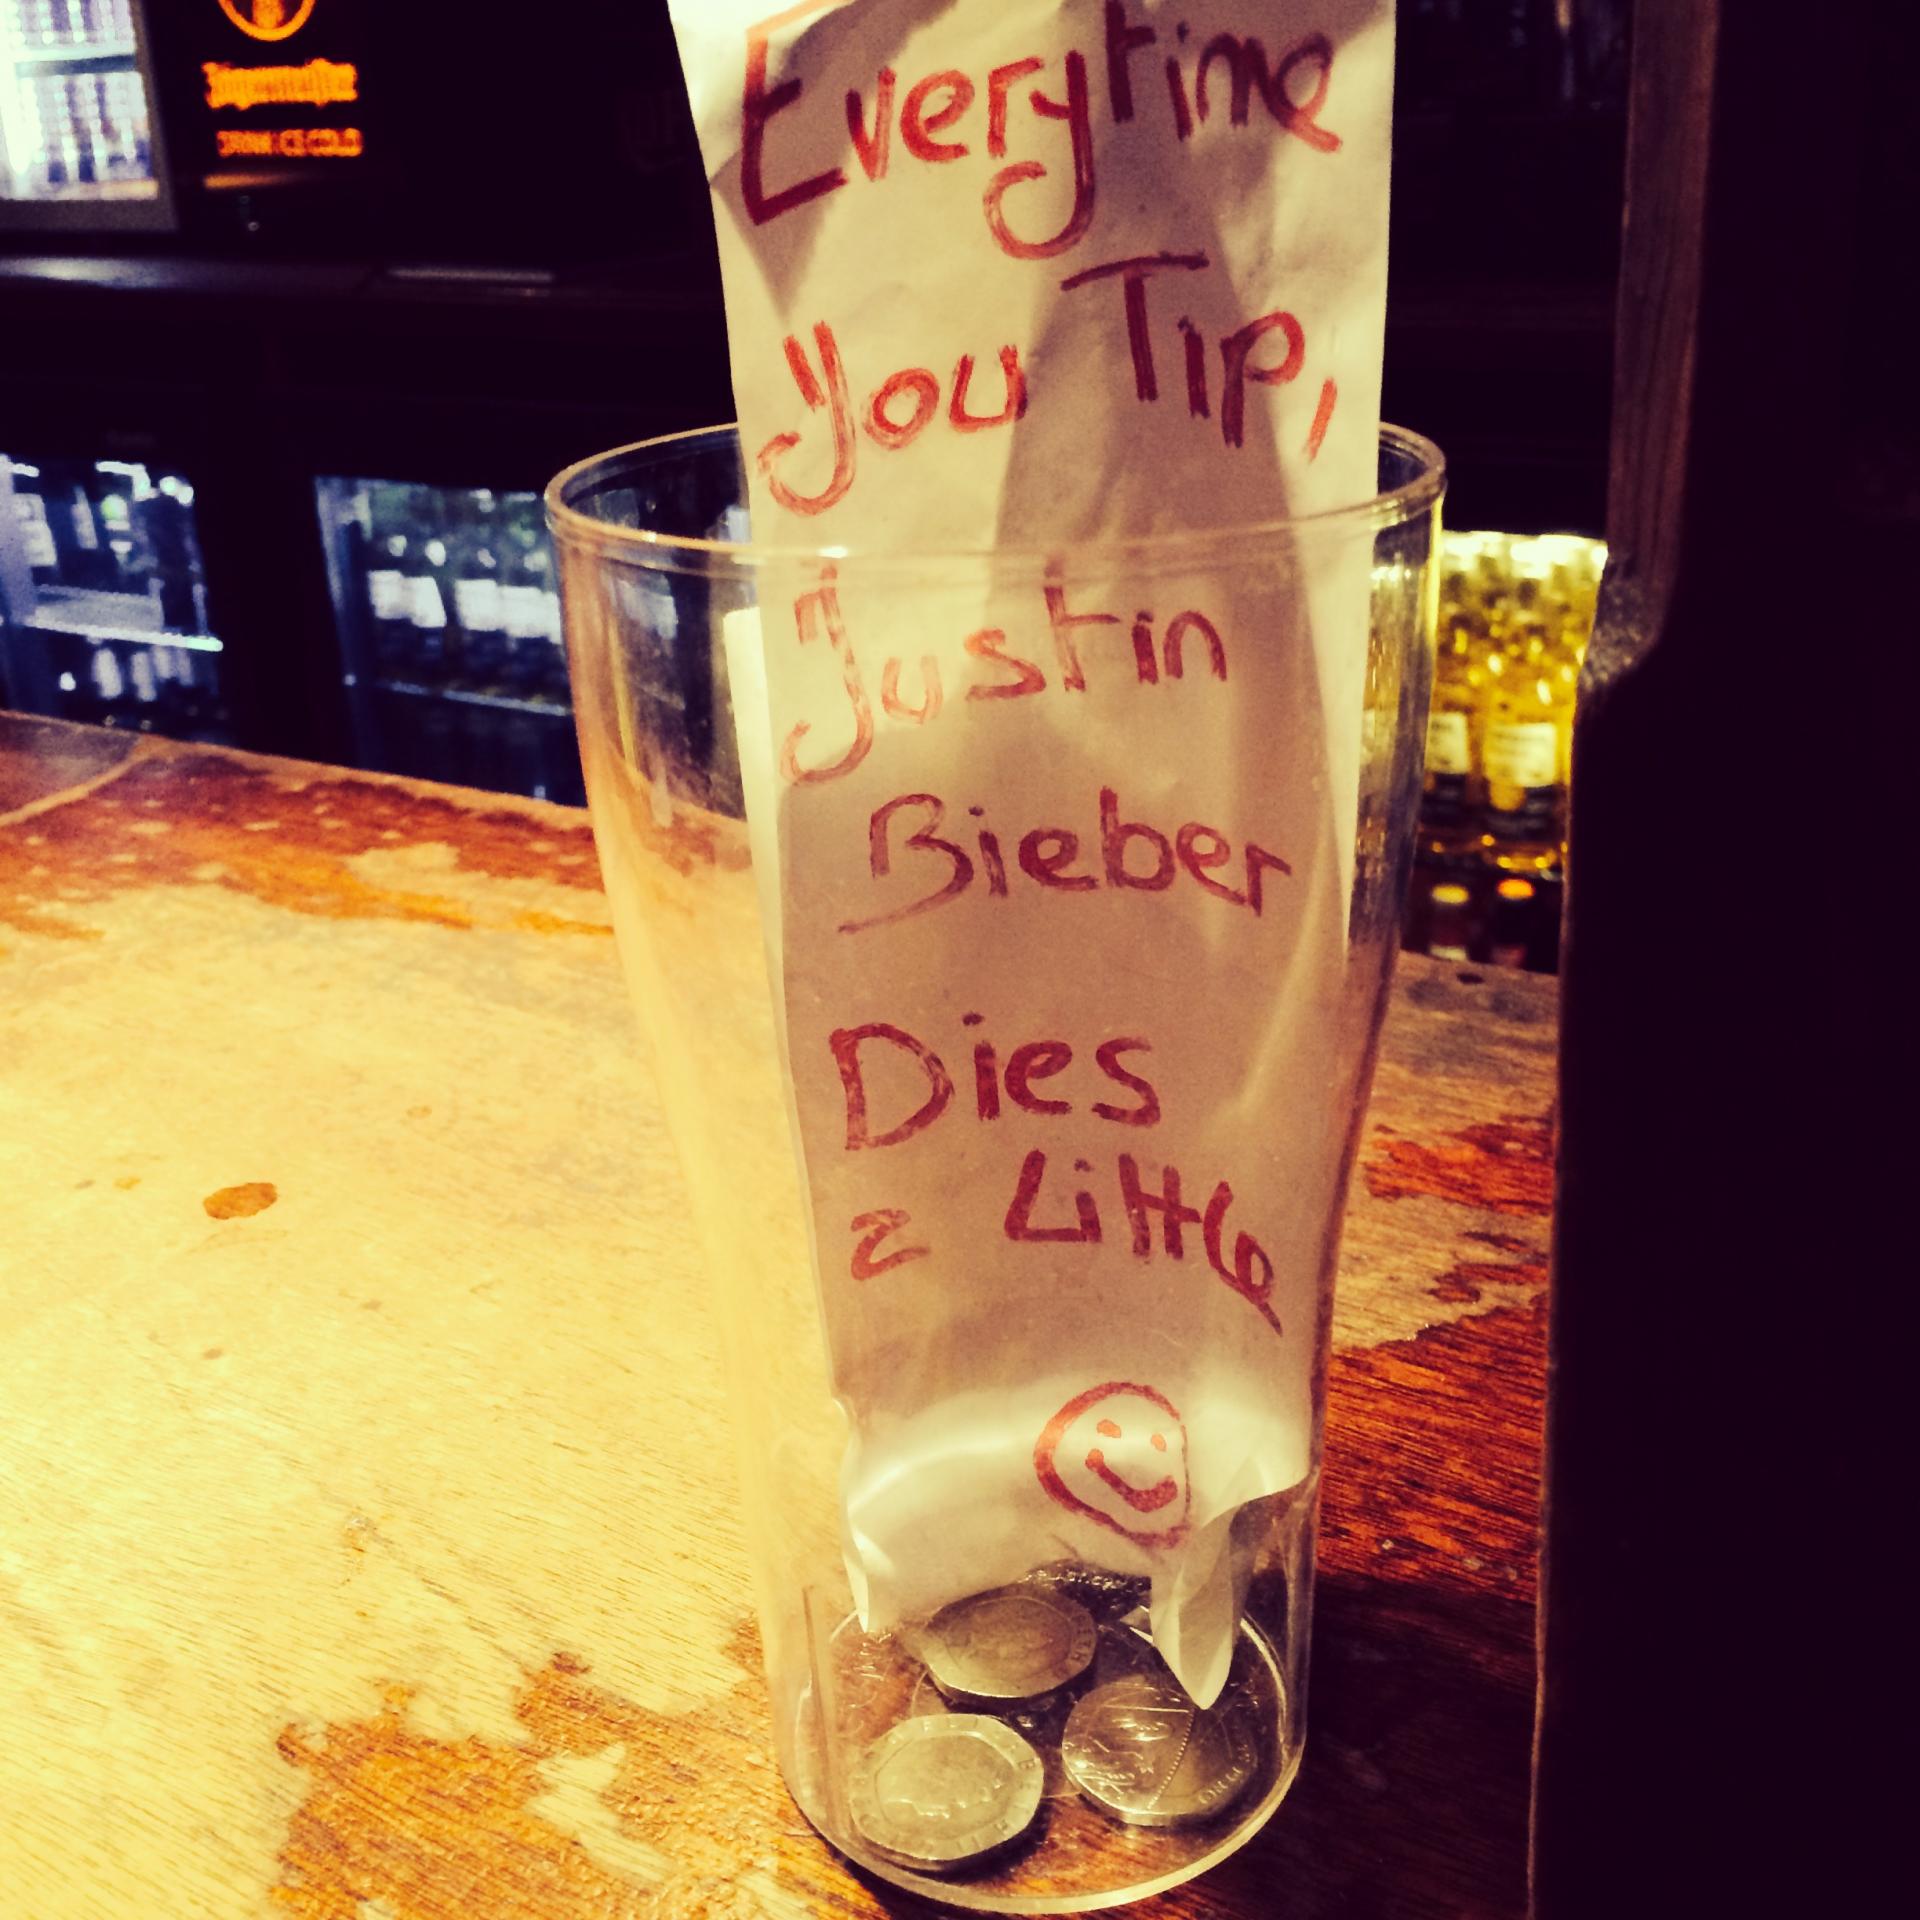 Jägermeister
DRINK ICE COLD
Everytime
you Tip,
Justin
Bieber
Dies
a Little